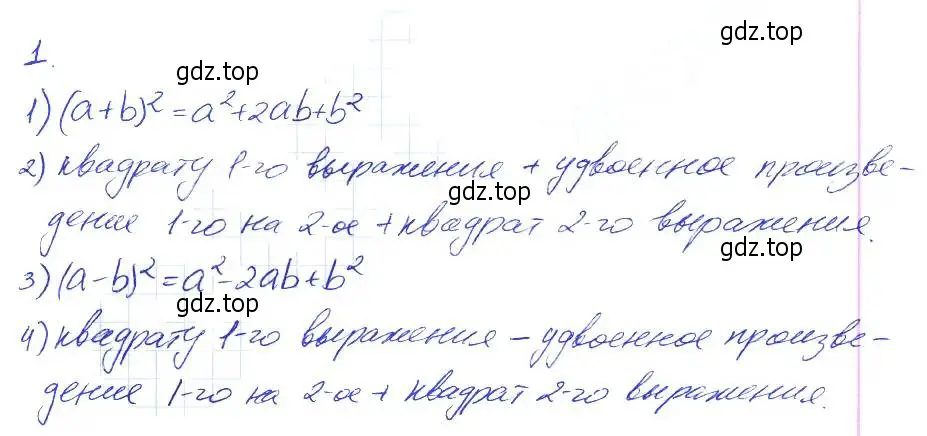 gdz.top
1.
gdz.top
1) (a+b)²=a²+2ab+b²
gdz.top
2) квадрату 1-го выражения + удвоенное произве-
gdz.top
дение 1-го на 2-ое + квадрат 2-го выражения.
gdz.top
3) (a-b)²=a²-2ab+b²
gdz.top
4) квадрату 1-го выражения - удвоенное произве-
gdz.top
дение 1-го на 2-ое + квадрат 2-го выражения.